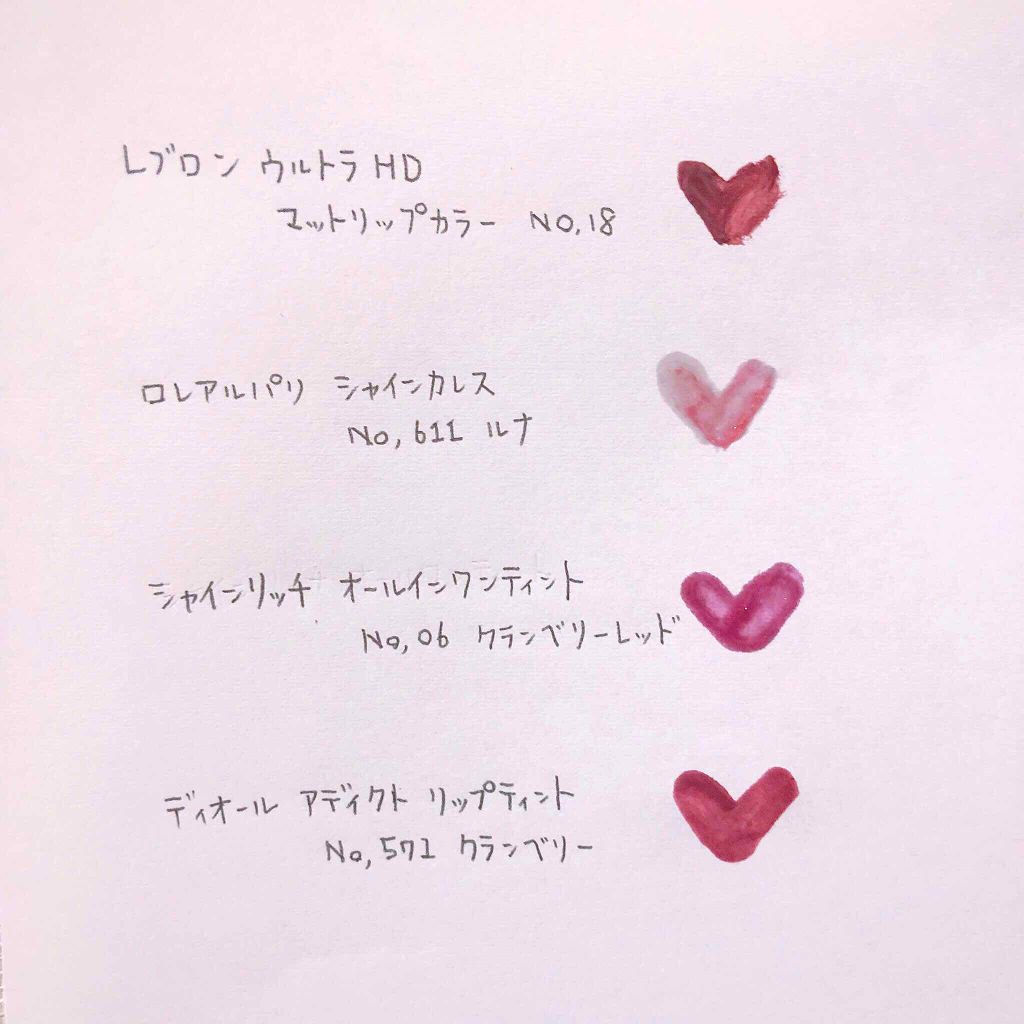 レブロン ウルトラHD
マットリップカラー NO,18
ロレアルパリ シャインカレス
No,611 ルナ
シャインリッチ オールインワンティント
No,06 クランベリーレッド
ディオール アディクト リップティント
No,571 クランベリー